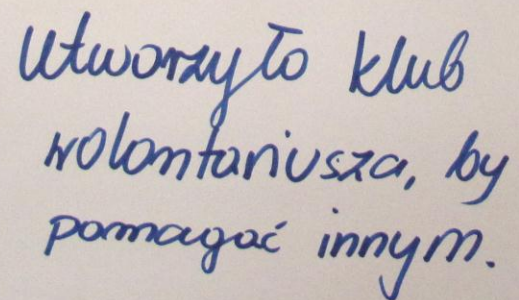 Utworzyło klub
wolontariusza, by
pomagać innym.